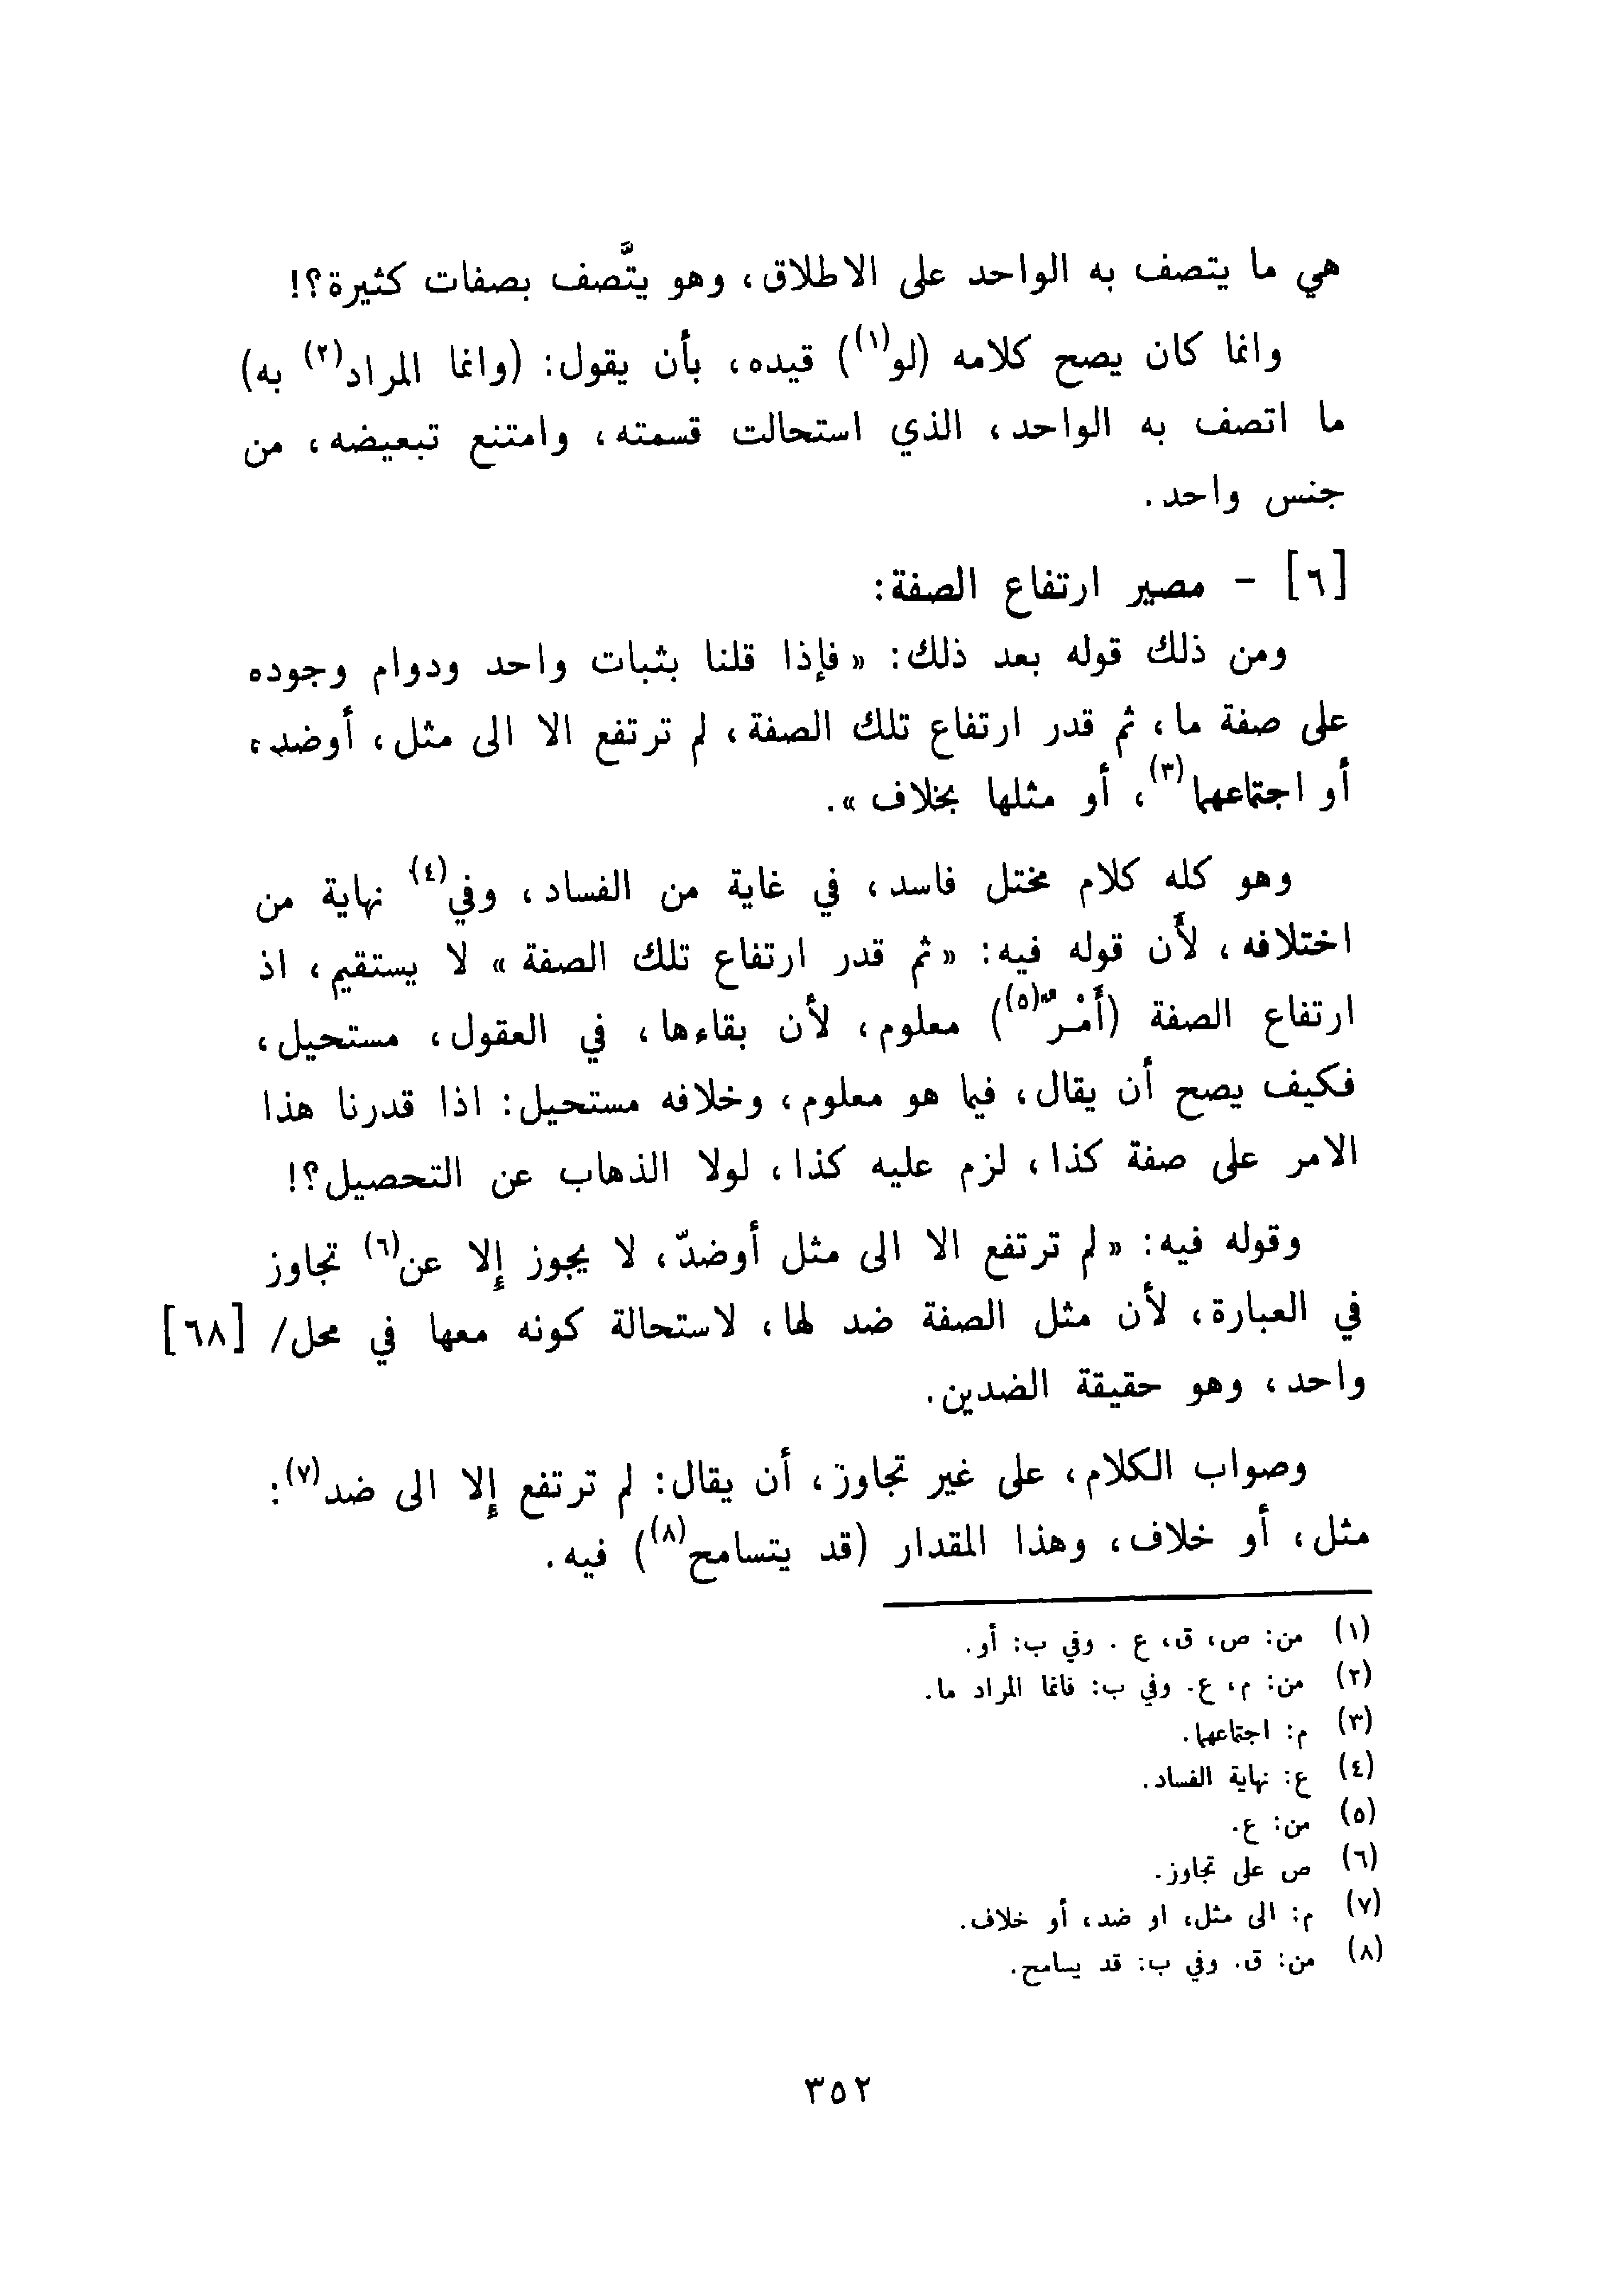 هي ما يتصف به الواحد على الاطلاق، وهو يتَّصف بصفات كثيرة؟!
وانما كان يصح كلامه (لو(١)) قيده، بأن يقول: (وانما المراد(٢) به)
ما اتصف به الواحد، الذي استحالت قسمته، وامتنع تبعيضه، من
جنس واحد.
[٦] - مصير ارتفاع الصفة:
ومن ذلك قوله بعد ذلك: «فإذا قلنا بثبات واحد ودوام وجوده
على صفة ما، ثم قدر ارتفاع تلك الصفة، لم ترتفع الا الى مثل، أوضد،
أو اجتماعهما(٣)، أو مثلها بخلاف».
وهو كله كلام مختل فاسد، في غاية من الفساد، وفي(٤) نهاية من
اختلافه، لأن قوله فيه: «ثم قدر ارتفاع تلك الصفة» لا يستقيم، اذ
ارتفاع الصفة (أَمْـرٌ(٥)) معلوم، لأن بقاءها، في العقول، مستحيل،
فكيف يصح أن يقال، فيما هو معلوم، وخلافه مستحيل: اذا قدرنا هذا
الامر على صفة كذا، لزم عليه كذا، لولا الذهاب عن التحصيل؟!
وقوله فيه: «لم ترتفع الا الى مثل أوضدّ، لا يجوز إلا عن(٦) تجاوز
في العبارة، لأن مثل الصفة ضد لها، لاستحالة كونه معها في محل/ [٦٨]
واحد، وهو حقيقة الضدين.
وصواب الكلام، على غير تجاوز، أن يقال: لم ترتفع إلا الى ضد(٧):
مثل، أو خلاف، وهذا المقدار (قد يتسامح(٨)) فيه.
(١) من: ص، ق، ع. وفي ب: أو.
(٢) من: م، ع. وفي ب: فانما المراد ما.
(٣) م: اجتماعهما.
(٤) ع: نهاية الفساد.
(٥) من: ع.
(٦) ص على تجاوز.
(٧) م: الى مثل، او ضد، أو خلاف.
(٨) من: ق. وفي ب: قد يسامح.
٣٥٢